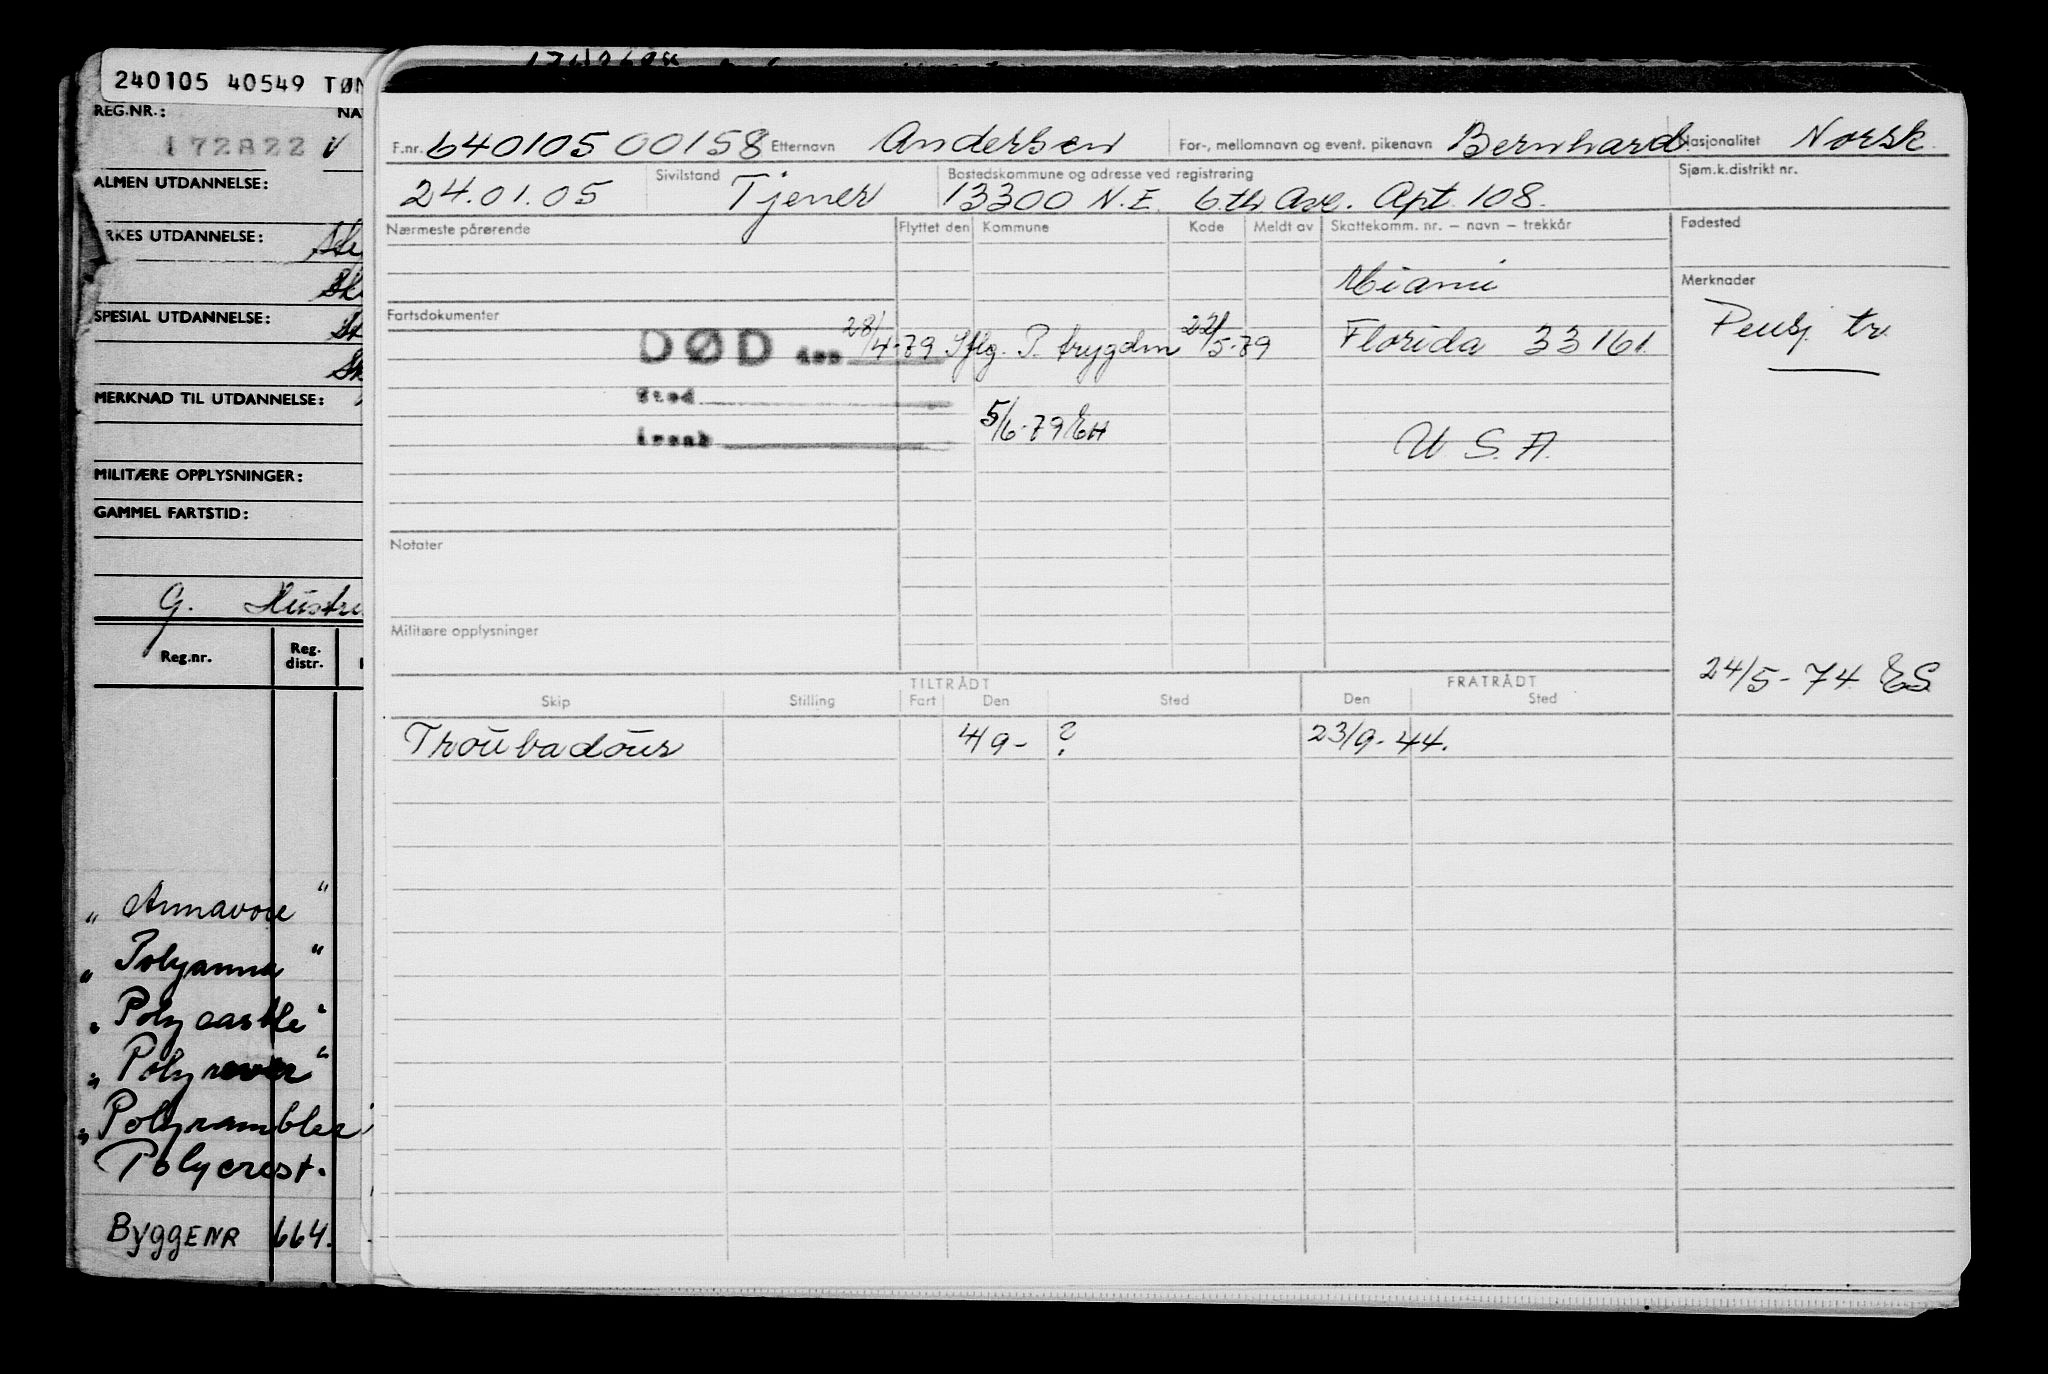 240105 40549 TØN
REG.NR.:
172822
ALMEN UTDANNELSE:
RKES UTDANNELSE:
SPESIAL UTDANNELSE:
MERKNAD TIL UTDANNELSE:
MILITÆRE OPPLYSNINGER:
GAMMEL FARTSTID:
G. Hustru
Reg.nr. Reg. distr.
" Annavore "
" Polyanna "
" Polycastle "
" Polyrover "
" Polyrambler
Polycrest.
ByggENR 664.
F.nr. 640105 00158 Etternavn Andersen For-, mellomnavn og event. pikenavn Bernhard Nasjonalitet Norsk.
24.01.05 Sivilstand Tjener Bostedskommune og adresse ved registrering 13300 N.E. 6th Ave. Apt. 108. Sjøm.k.distrikt nr.
Nærmeste pårørende Flyttet den Kommune Kode Meldt av Skattekomm. nr. – navn – trekkår Fødested
Miami Merknader
Fartsdokumenter
DØD den 28/4-79 Iflg. P. trygden 22/5-79 Florida 33161. Pensj. tr.
Sted
årsak 5/6-79 EH U.S.A.
Notater
Militære opplysninger
24/5-74 ES
TILTRÅDT FRATRÅDT
Skip Stilling Fart Den Sted Den Sted
Troubadour 4/9- ? 23/9-44.